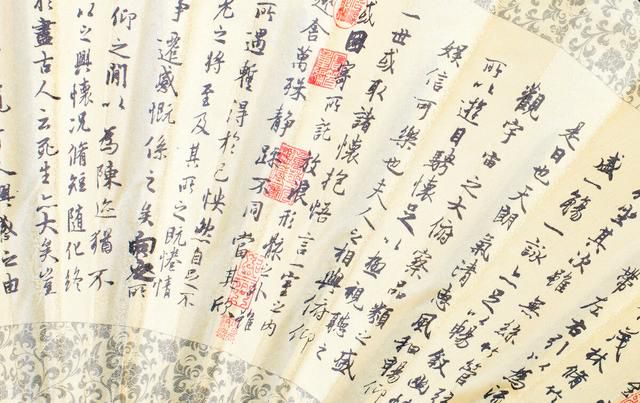 茂林
帶左右引以為流
坐其次雖無絲竹管
盛一觴一詠亦足以暢敘幽
是日也天朗氣清惠風和暢仰
觀宇宙之大俯察品類之盛
所以遊目騁懷足以極視聽之
娛信可樂也夫人之相與俯仰
一世或取諸懷抱悟言一室之內
或因寄所託放浪形骸之外雖
趣舍萬殊靜躁不同當其欣
所遇暫得於己快然自足不
老之將至及其所之既惓情
事遷感慨係之矣向之所
仰之間以為陳迹猶不
以之興懷況脩短隨化終
於盡古人云死生亦大矣豈
人興感之由